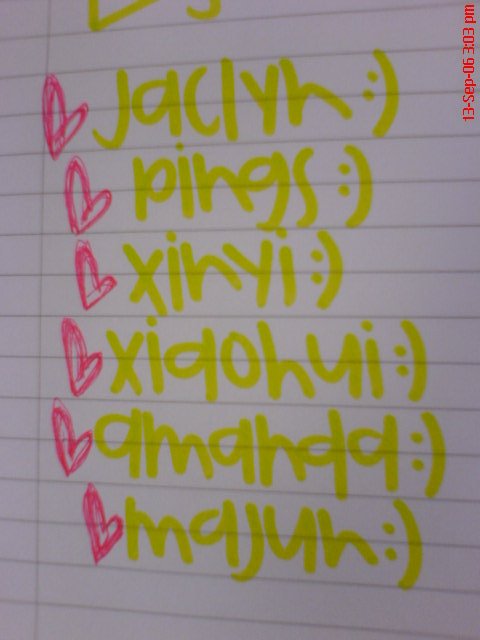 jaclyn :)
pings :)
xinyi :)
xiaohui :)
amanda :)
majun :)
13-Sep-06 3:03 pm